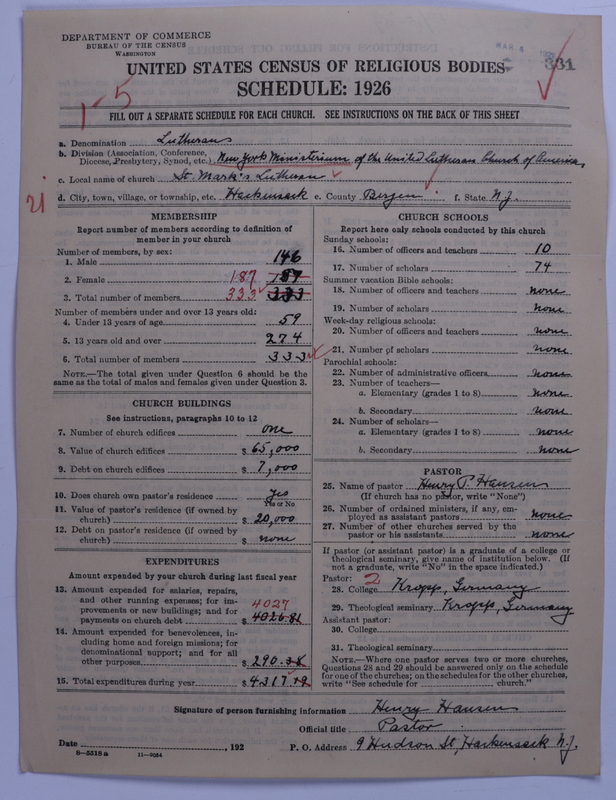 DEPARTMENT OF COMMERCE
BUREAU OF THE CENSUS
WASHINGTON
331
UNITED STATES CENSUS OF RELIGIOUS BODIES
SCHEDULE: 1926
1-5
FILL OUT A SEPARATE SCHEDULE FOR EACH CHURCH. SEE INSTRUCTIONS ON THE BACK OF THIS SHEET
a. Denomination Lutheran
b. Division (Association, Conference, Diocese, Presbytery, Synod, etc.) New York Ministerium of the United Lutheran Church of America
c. Local name of church St. Mark's Lutheran
d. City, town, village, or township, etc. Hackensack e. County Bergen f. State N.J.
21
MEMBERSHIP
Report number of members according to definition of
member in your church
Number of members, by sex:
1. Male 146
2. Female 187 187
3. Total number of members 333 333
Number of members under and over 13 years old:
4. Under 13 years of age 59
5. 13 years old and over 274
6. Total number of members 333
NOTE.—The total given under Question 6 should be the
same as the total of males and females given under Question 3.
CHURCH BUILDINGS
See instructions, paragraphs 10 to 12
7. Number of church edifices one
8. Value of church edifices $ 65,000
9. Debt on church edifices $ 7,000
10. Does church own pastor's residence Yes
Yes or No
11. Value of pastor's residence (if owned by
church) $ 20,000
12. Debt on pastor's residence (if owned by
church) $ none
EXPENDITURES
Amount expended by your church during last fiscal year
13. Amount expended for salaries, repairs,
and other running expenses; for im-
provements or new buildings; and for
payments on church debt $ 4027 4026.81
14. Amount expended for benevolences, in-
cluding home and foreign missions; for
denominational support; and for all
other purposes $ 290.38
15. Total expenditures during year $ 4317.19
CHURCH SCHOOLS
Report here only schools conducted by this church
Sunday schools:
16. Number of officers and teachers 10
17. Number of scholars 74
Summer vacation Bible schools:
18. Number of officers and teachers none
19. Number of scholars none
Week-day religious schools:
20. Number of officers and teachers none
21. Number of scholars none
Parochial schools:
22. Number of administrative officers none
23. Number of teachers—
a. Elementary (grades 1 to 8) none
b. Secondary none
24. Number of scholars—
a. Elementary (grades 1 to 8) none
b. Secondary none
PASTOR
25. Name of pastor Henry P. Hansen
(If church has no pastor, write "None")
26. Number of ordained ministers, if any, em-
ployed as assistant pastors none
27. Number of other churches served by the
pastor or his assistants none
If pastor (or assistant pastor) is a graduate of a college or
theological seminary, give name of institution below. (If
not a graduate, write "No" in the space indicated.)
Pastor: 2
28. College Kropp, Germany
29. Theological seminary Kropp, Germany
Assistant pastor:
30. College
31. Theological seminary
NOTE.—Where one pastor serves two or more churches,
Questions 28 and 29 should be answered only on the schedule
for one of the churches; on the schedules for the other churches,
write "See schedule for church."
Signature of person furnishing information Henry Hansen
Official title Pastor
Date , 192 P. O. Address 9 Hudson St, Hackensack N.J.
8—5518 a 11—9054